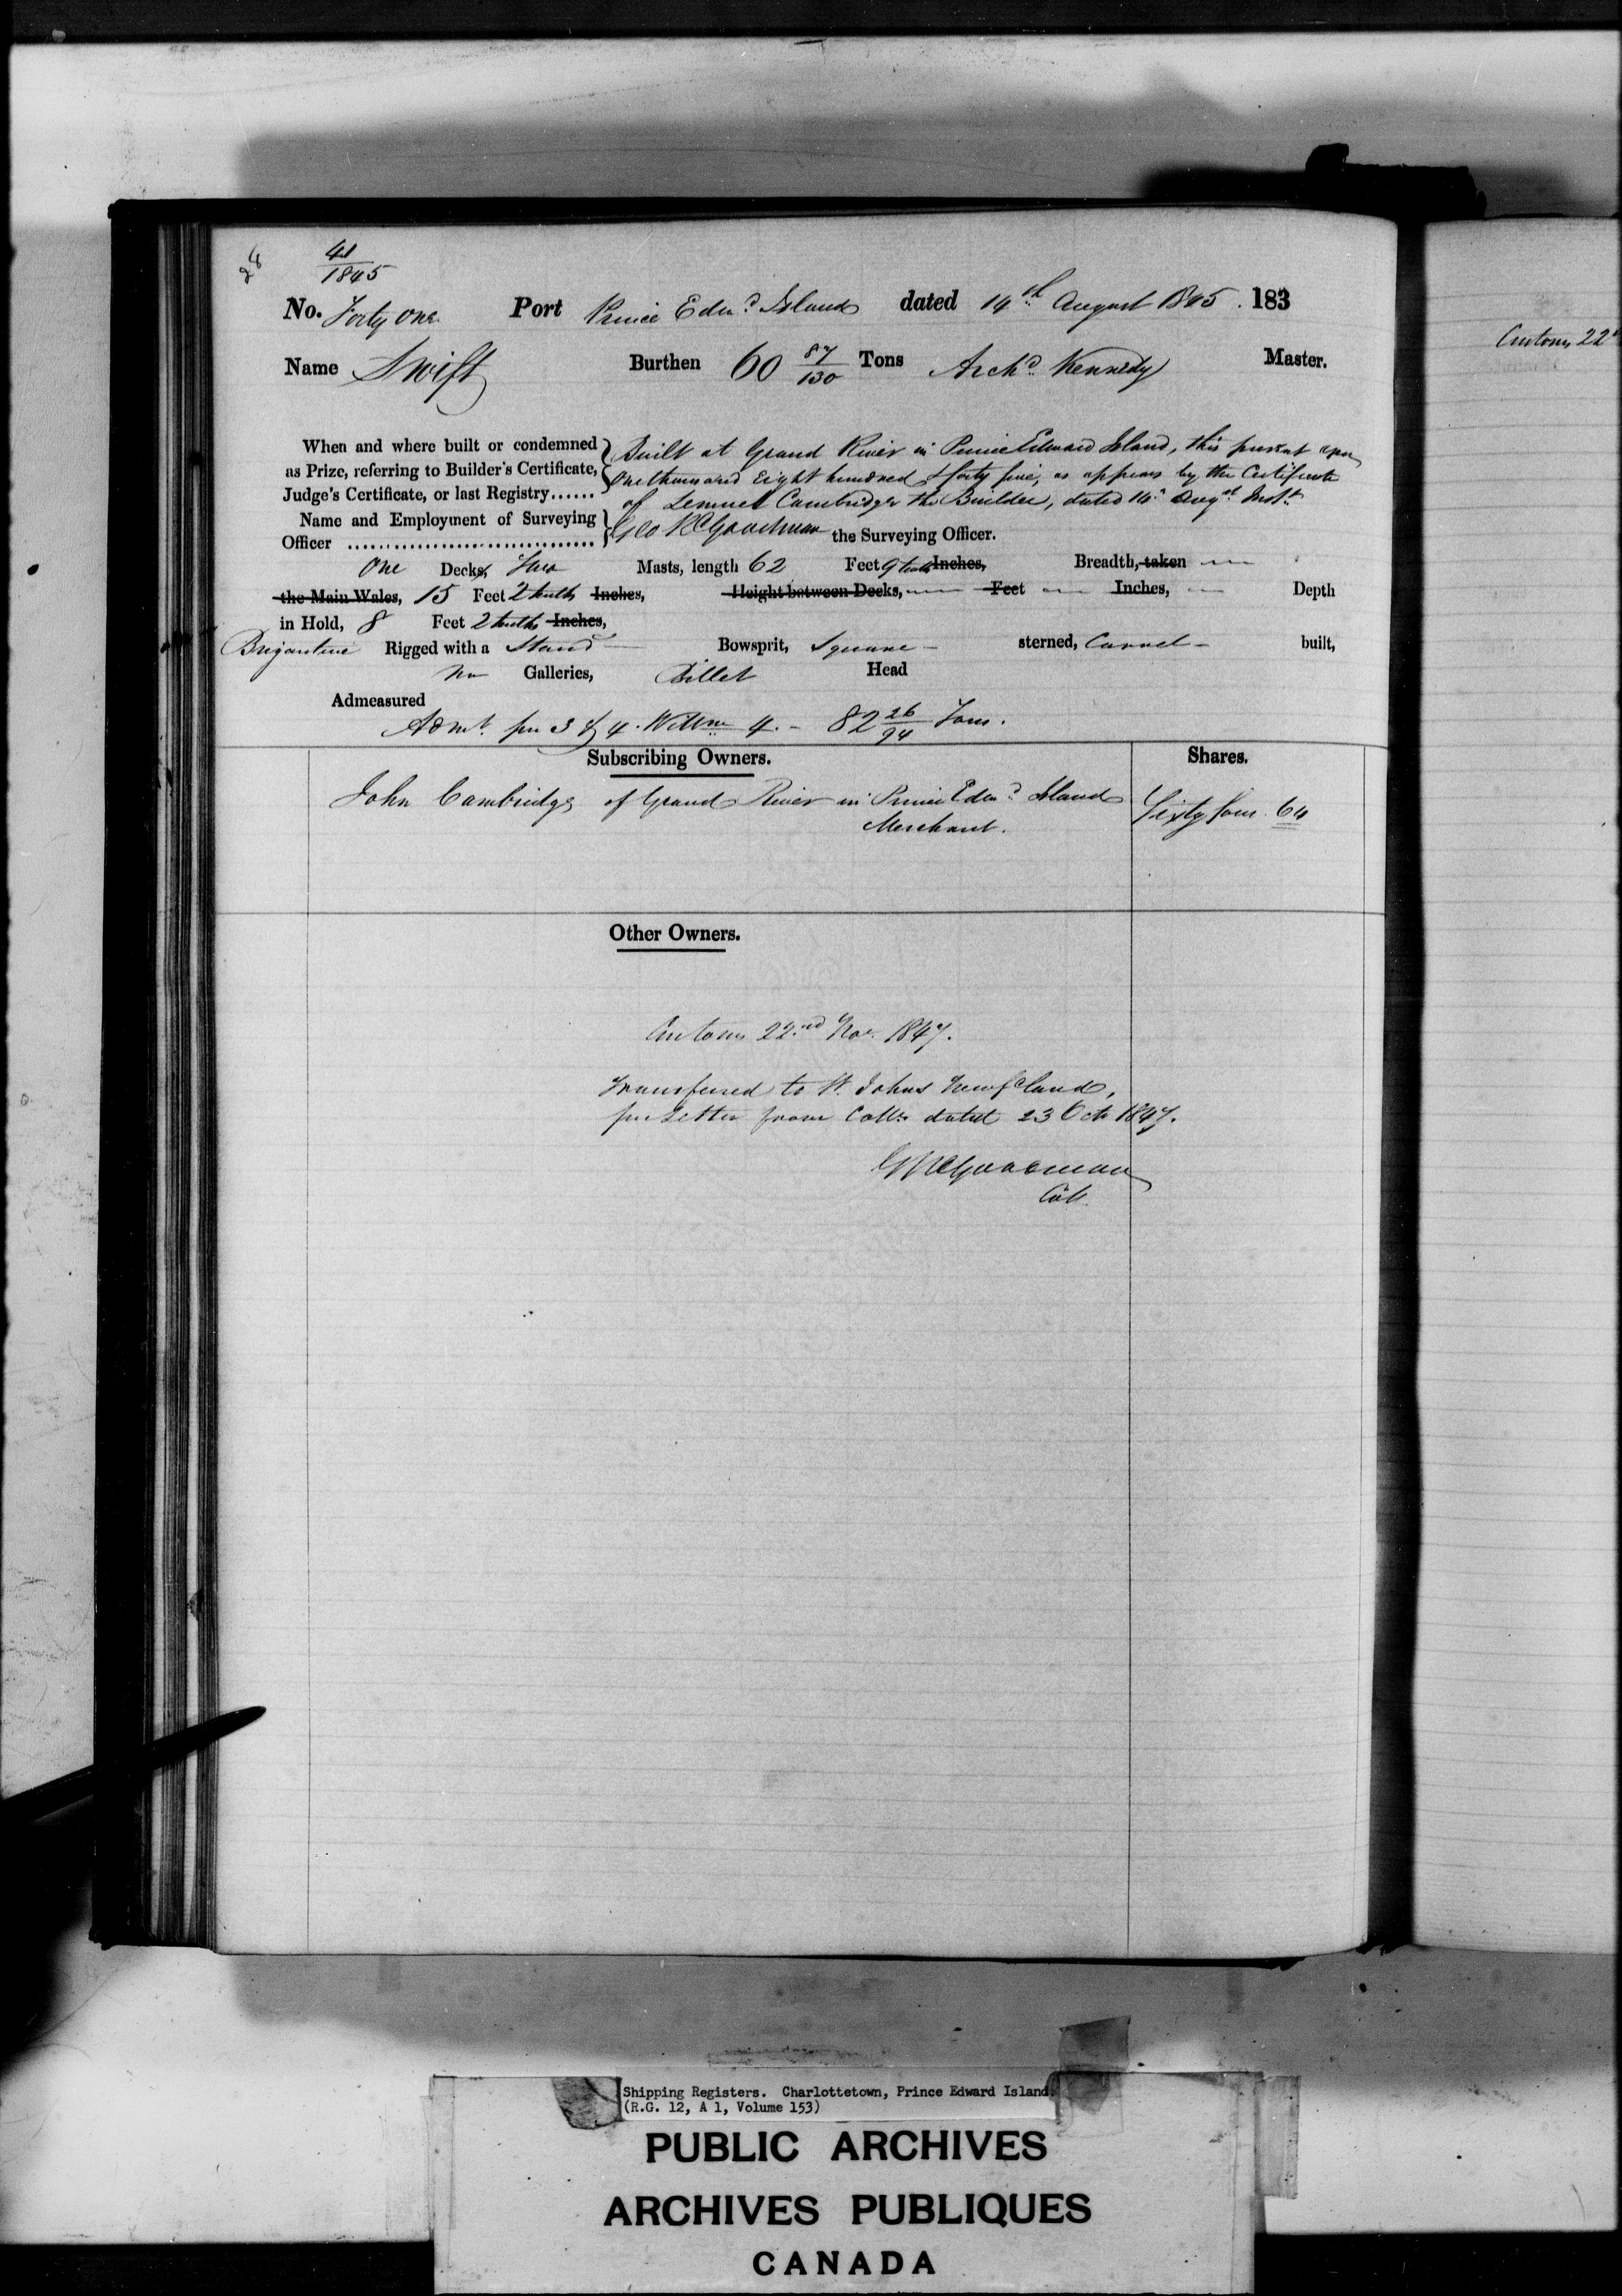 28
41/1845
No. Forty One Port Prince Edwd Island dated 14th August 1845. 183
Name Swift Burthen 60 87/130 Tons Archd Kennedy Master.
When and where built or condemned as Prize, referring to Builder's Certificate, Judge's Certificate, or last Registry......
Built at Grand River in Prince Edward Island, this present year
One thousand Eight hundred & forty five, as appears by the Certificate
of Lemuel Cambridge the Builder, dated 14th Augst Inst
Name and Employment of Surveying Officer ................................ Geo R Goodman the Surveying Officer.
One Decks, Two Masts, length 62 Feet 9 tenths Inches, Breadth, taken —
the Main Wales, 15 Feet 2 tenths Inches, Height between Decks, — Feet — Inches, — Depth
in Hold, 8 Feet 2 tenths Inches,
Brigantine Rigged with a Stand — Bowsprit, Square - sterned, Carvel - built,
no Galleries, Billet Head
Admeasured
Admt. per 3 & 4 Willm 4. - 82 26/94 Tons.
Subscribing Owners. Shares.
John Cambridge of Grand River in Prince Edwd Island Sixty four 64
Merchant.
Other Owners.
Customs 22nd Nov. 1847.
Transfered to St. Johns Newfdland,
per Letter from Collr dated 23 Oct 1847.
GRGoodman
Coll.
Customs 22
Shipping Registers. Charlottetown, Prince Edward Island.
(R.G. 12, A 1, Volume 153)
PUBLIC ARCHIVES
ARCHIVES PUBLIQUES
CANADA